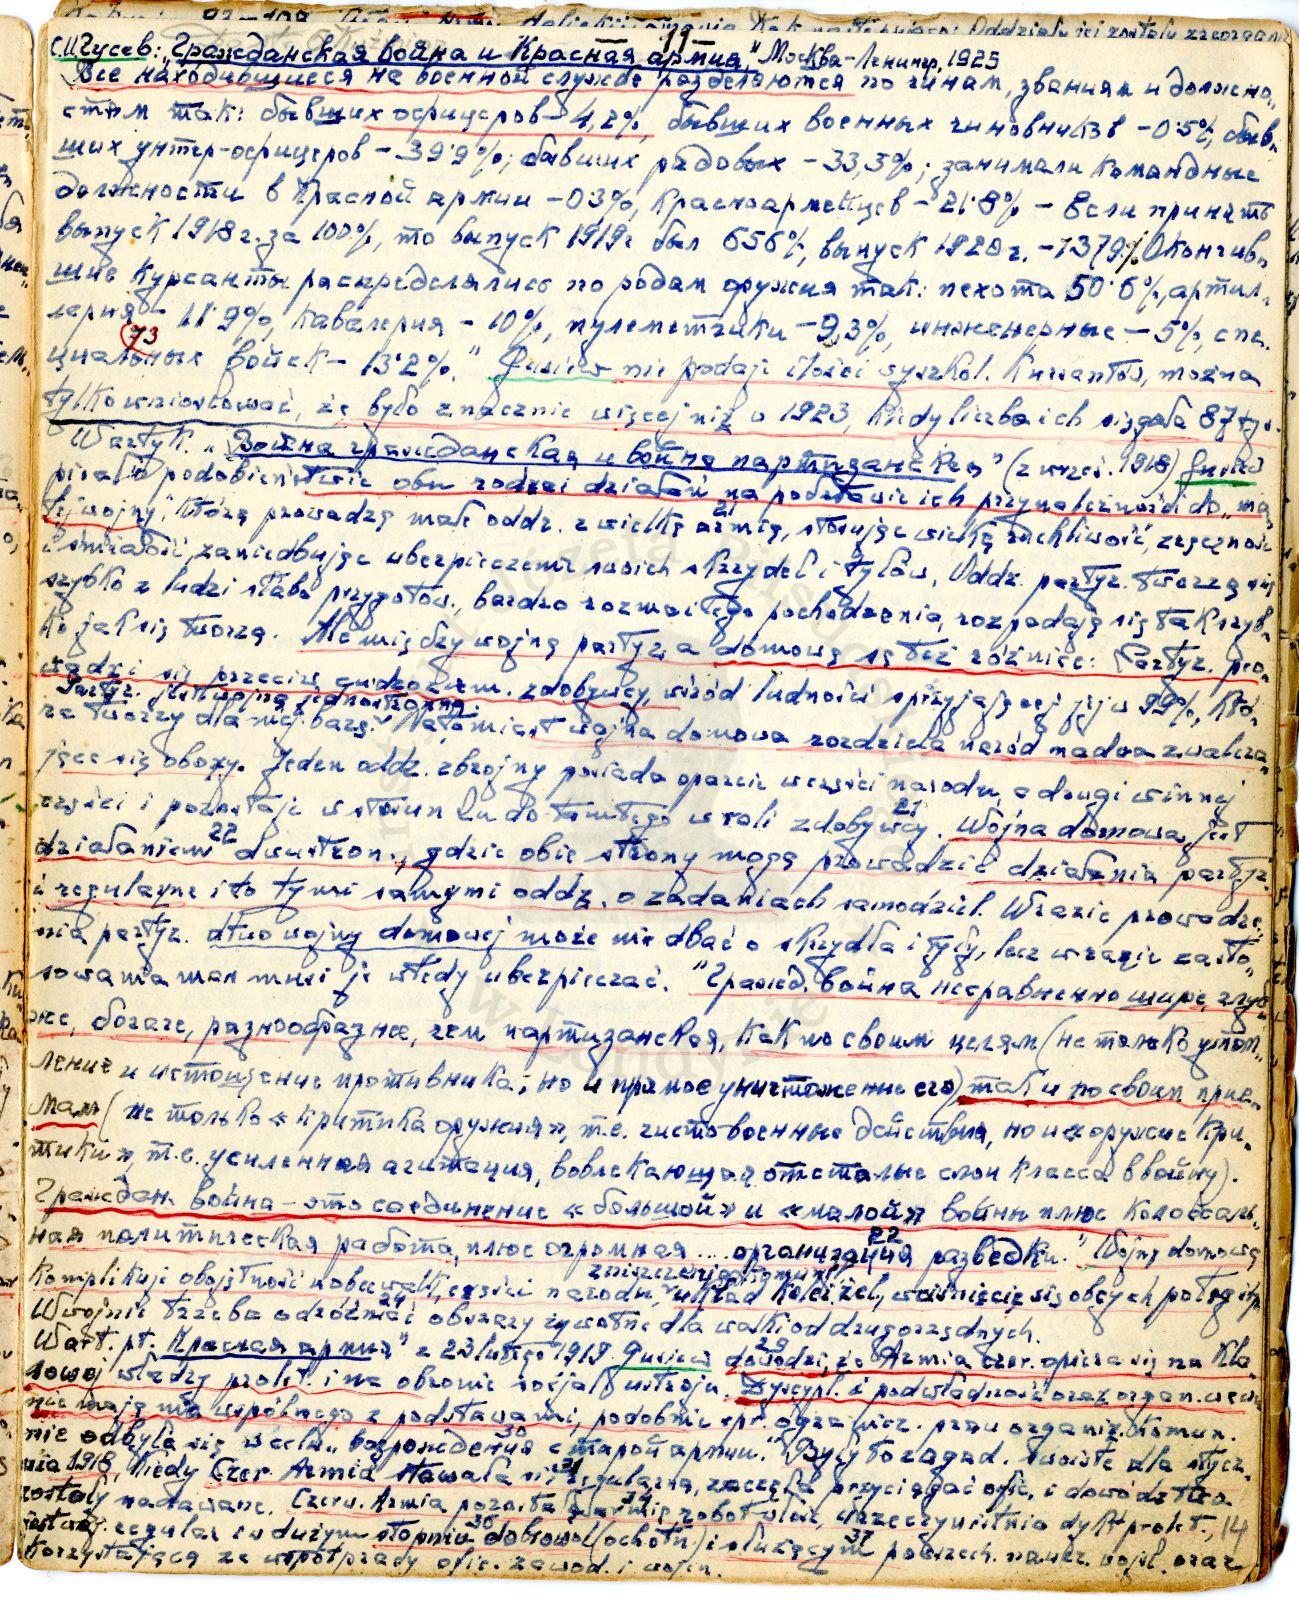 -11-
С.И. Гусев: "Гражданская война и Красная армия," Москва-Ленингр, 1925
Все находившиеся на военной службе разделяются по чинам, званиям и должно-
стям так: бывших офицеров - 4,2%, бывших военных чиновников - 0·5%, быв-
ших унтер-офицеров - 39·9%; бывших рядовых - 33,3%; занимали командные
должности в Красной армии - 03%, Красноармейцев - 21·8% - Если принять
выпуск 1918 г. за 100%, то выпуск 1919 г был 656%, выпуск 1920 г. - 1379% Окончив-
шие курсанты распределялись по родам оружия так: пехота 50·6%, артил-
лерия - 11·9%, Кавалерия - 10%, пулеметчики - 9,3%, инженерные - 5%, спе-
73
циальных войск - 13·2%." Gusiew nie podaje ilości wyszkol. Kursantów, można
tylko wnioskować, że było znacznie więcej niż w 1923, kiedy liczba ich sięgała 87 tys.
W artyk. "Война гражданская и война партизанская" (z wrześ. 1918) Gusiew
pisał o podobieństwie obu rodzai działań na podstawie ich przynależności do "ma-
21
łej wojny", którą prowadzą małe oddz. z wielką armią, stosując wielką ruchliwość, zręczność
i śmiałość, zaniedbując ubezpieczenie swoich skrzydeł i tyłów. Oddz. partyz. tworzą się
szybko z ludzi słabo przygotow., bardzo rozmaitego pochodzenia, rozpadają się tak szyb-
ko jak się tworzą. Ale między wojną partyz, a domową są też różnice: Partyz. pro-
wadzi się przeciw cudzoziem. zdobywcy, wśród ludności sprzyjającej jej w 99%, któ-
Partyz. jest wojną jednostronną.
ra tworzy dla niej bazę. Natomiast wojna domowa rozdziela naród na dwa zwalcza-
jące się obozy. Jeden oddz. zbrojny posiada oparcie w części narodu, a drugi w innej
21
części i pozostaje w stosunku do tamtego w roli zdobywcy. Wojna domowa jest
22
działaniem dwustron., gdzie obie strony mogą prowadzić działania partyz.
i regularne i to tymi samymi oddz. o zadaniach samodziel. W razie prowadze-
nia partyz. wojny domowej może nie dbać o skrzydła i tyły, lecz w razie zasto-
sowania mas musi je wtedy ubezpieczać. "Гражд. война несравненно шире, глуб-
же, богаче, разнообразнее, чем партизанская, как по своим целям (не только утом-
ление и истощение противника, но и прямое уничтожение его) так и по своим прие-
мам (не только «критика оружия», т.е. чисто военные действия, но и «оружие кри-
тики», т.е. усиленная агитация, вовлекающая отсталые слои класса в войну).
Граждан. война - это соединение «большой» и «малой» войны плюс колоссаль-
22
ная политическая работа, плюс огромная .... организация разведки." Wojnę domową
komplikuje obojętność części narodu, układ kolei żel., wciśnięcie się obcych
24
W wojnie trzeba odróżniać obszary żywotne dla walki od drugorzędnych.
29
W art. pt. "Красная армия" z 23 lutego 1919 Gusiew dowodzi, że Armia czer. opiera się na kla-
sowej władzy prolet. i na obronie socjal. ustroju. Dyscypl. i podwładność oraz organ. wewn.
nie mają nic wspólnego z podstawami, podobnie
30
nie odbyła się w celu "возрождения старой армии." Były to zagad. istotne dla stycz-
31
nia 1918, kiedy Czer. Armia stawała się regularną, zaczęła przyciągać ofic. i dowództwa
34
zostały nadawane. Czerw. Armia pozostała armią robot. w rzeczywistnia dykt. prolet.,
36 37
regular. w dużym stopniu dobrowol (ochotn) i służącym powszech. naucz. wojsk. oraz
14
korzystającą ze współpracy ofic. zawod. i wojen.